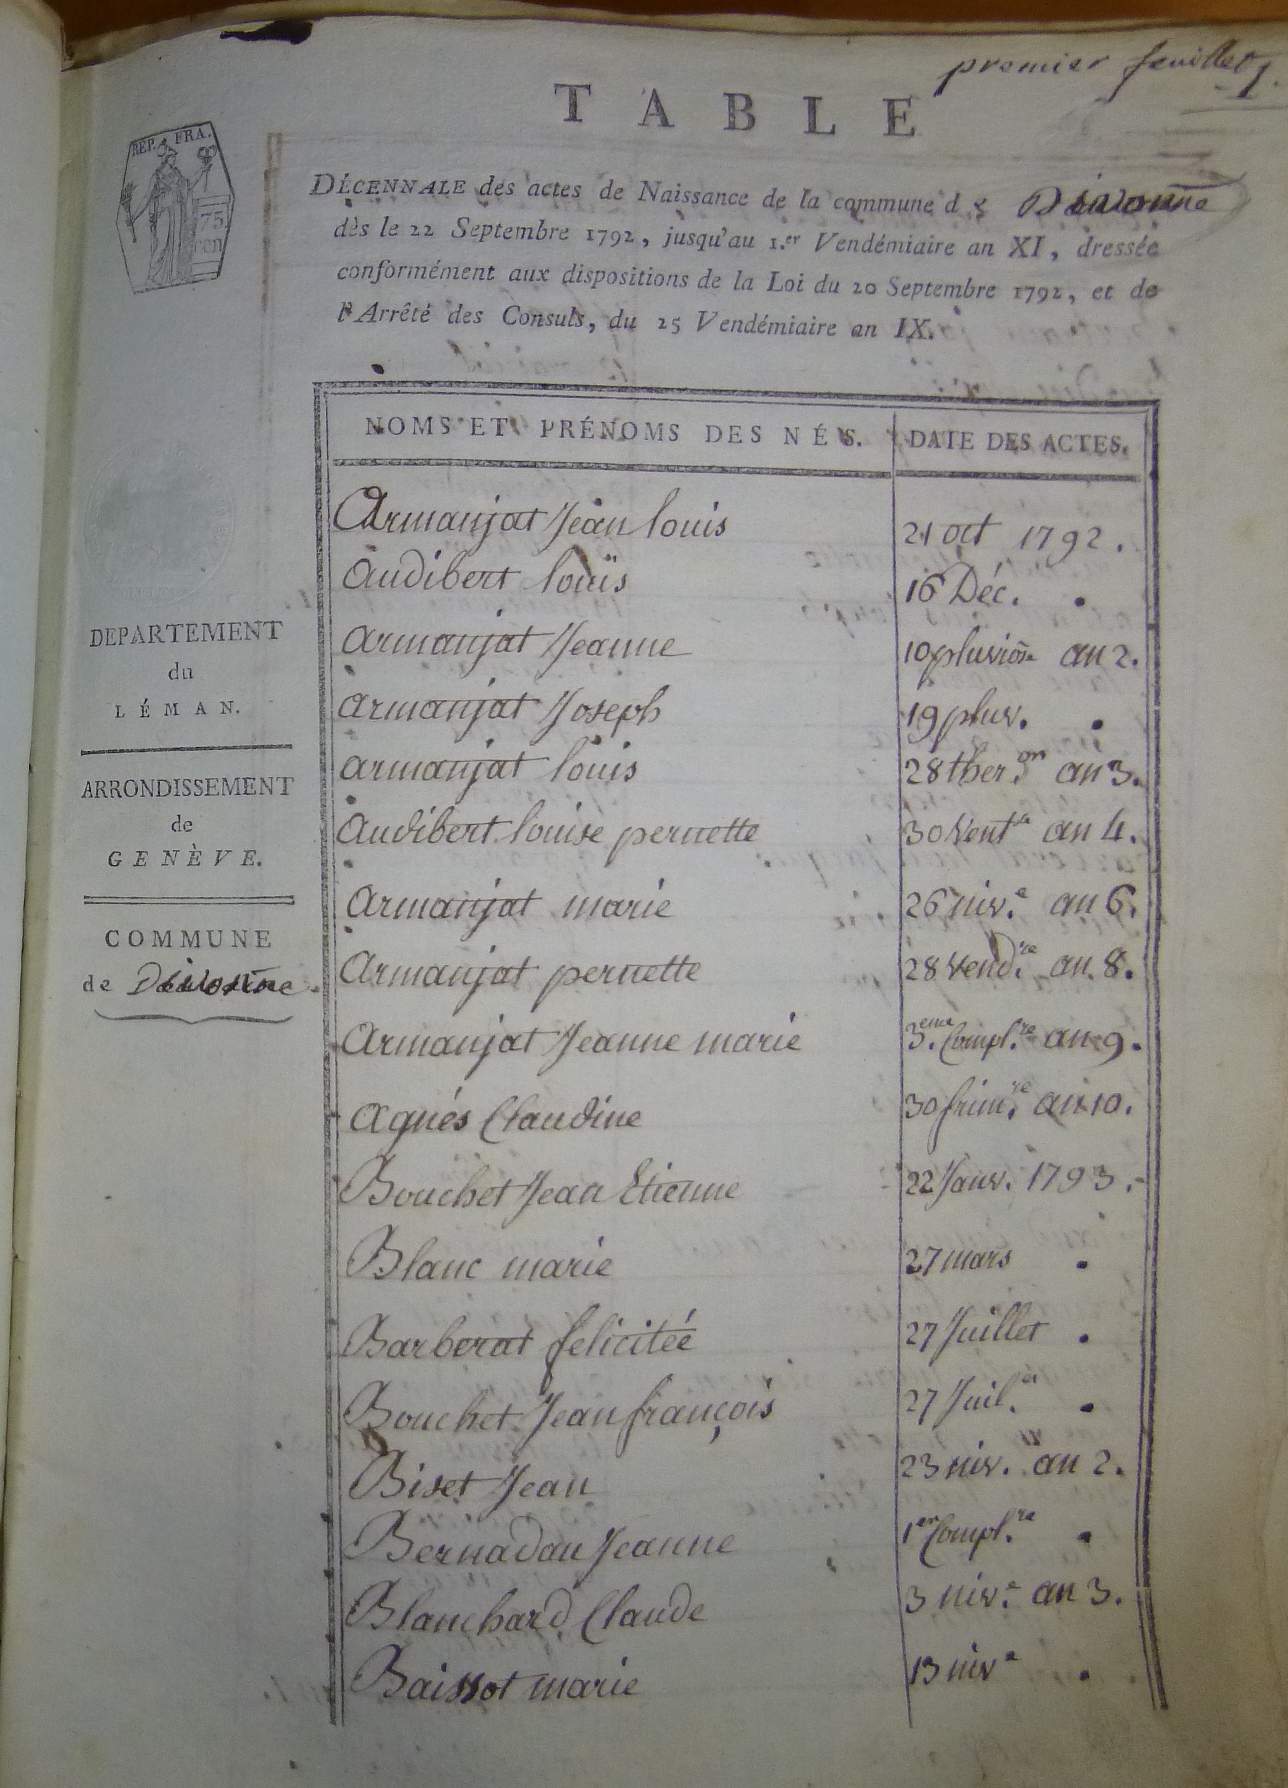 premier feuillet 1.
TABLE
REP. FRA.
75
cen
DÉCENNALE des actes de Naissance de la commune d e Divonne
dès le 22 Septembre 1792, jusqu'au 1.er Vendémiaire an XI, dressée
conformément aux dispositions de la Loi du 20 Septembre 1792, et de
l'Arrêté des Consuls, du 25 Vendémiaire an IX.
DEPARTEMENT
du
LÉMAN.
ARRONDISSEMENT
de
GENÈVE.
COMMUNE
de Divonne.
NOMS ET PRÉNOMS DES NÉS. DATE DES ACTES.
Armanjat Jean louis 21 oct 1792.
Audibert louïs 16 Déc. .
armanjat Jeanne 10 pluviôse an 2.
armanjat Joseph 19 pluv. .
armanjat louis 28 ther.or an 3.
Audibert louise pernette 30 Vent.se an 4.
Armanjat marie 26 niv.e an 6.
Armanjat pernette 28 Vend.re an 8.
Armanjat Jeanne marie 3.eme Compl.re an 9.
Agnés Claudine 30 frim.re an 10.
Bouchet Jean Etienne 22 Janv. 1793.
Blanc marie 27 mars .
Barberat felicitée 27 Juillet .
Bouchet Jean françois 27 Juil.et .
Biset Jean 23 niv. an 2.
Bernadau Jeanne 1er Compl.re .
Blanchard Claude 3 niv.e an 3.
Baissot marie 13 niv.e .